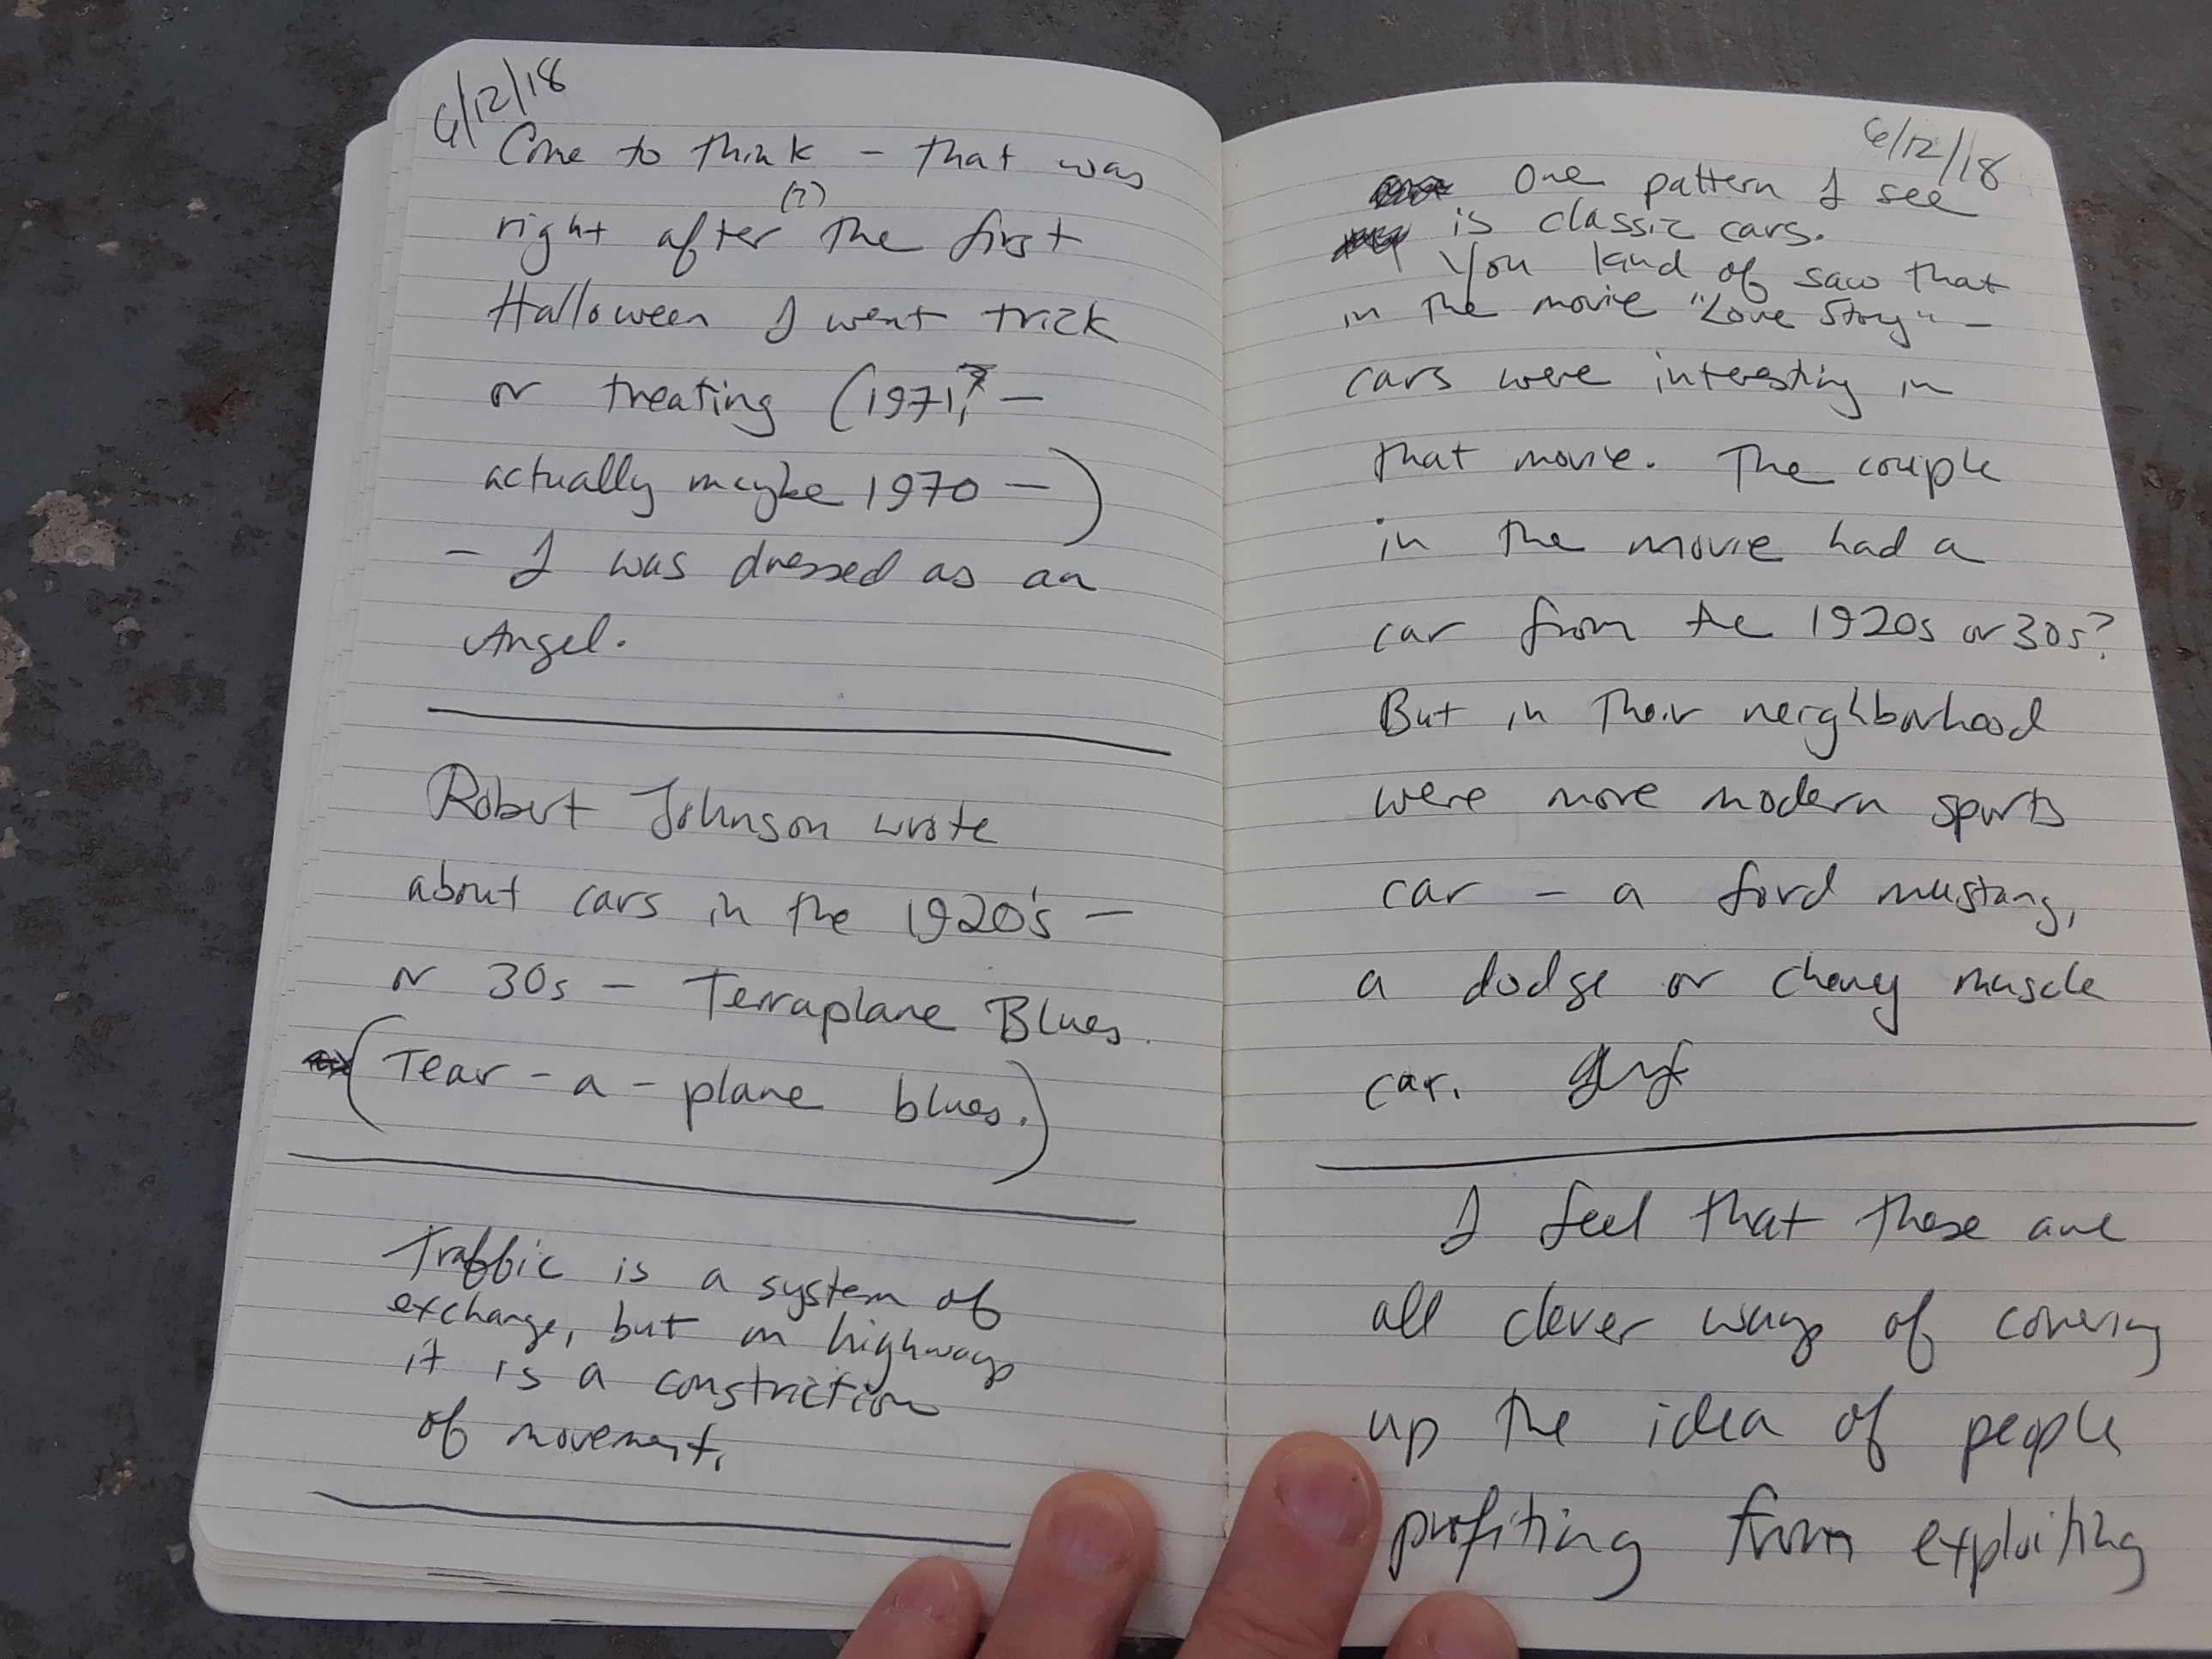 6/12/18
Come to think - that was
right after (?) the first
Halloween I went trick
or treating (1971,? -
actually maybe 1970 - )
- I was dressed as an
Angel.
Robert Johnson wrote
about cars in the 1920's -
or 30s - Terraplane Blues.
(Tear-a-plane blues.)
Traffic is a system of
exchange, but on highways
it is a constriction
of movement.
6/12/18
One pattern I see
is classic cars.
You kind of saw that
in the movie "Love Story" -
cars were interesting in
that movie. The couple
in the movie had a
car from the 1920s or 30s?
But in their neighborhood
were more modern sports
car - a ford mustang,
a dodge or chevy muscle
car.
I feel that these are
all clever ways of covering
up the idea of people
profiting from exploiting